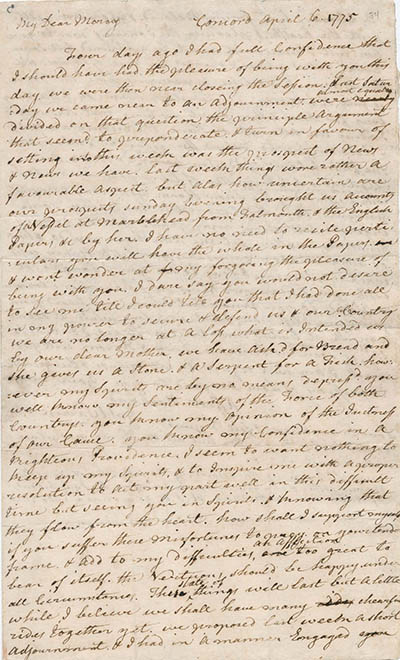 My Dear Mercy Concord April 6. 1775
Four day ago I had full Confidence that
I should have had the pleasure of being with you this
day we were then near closing the Session. Last Satur
day we came near to an Adjournment. were almost equally
divided on that question the principle Argument
that seemd to preponderate, & turn in favour of
setting in this week was the prospect of News
& News we have. Last week things wore rather a
favourable aspect. but alas how uncertain are
our prospects sunday Evening brought us Accounts
of a Vessel at Marblehead from Falmouth, & the English
Papers &c by her. I have no need to recite perti
culars you will have the whole in the Papers,
& wont wonder at my forgoing the pleasure of
being with you. I dare say you would not desire
to see me till I could tell you that I had done all
in my power to secure & defend us & our Country
we are no longer at a loss what is Intended us
by our dear Mother. we have Askd for Bread and
she gives us a Stone, & a Serpent for a Fish. how
ever my Spirits are by no means depress'd you
well know my Sentiments of the Force of both
Countrys. you know my opinion of the Justness
of our Cause. you know my Confidence in A
Righteous Providence. I seem to want nothing to
keep up my Spirits, & to Inspire me with a proper
resolution to Act my part well in this difficult
time but seeing you in Spirits, & knowing that
they flow from the heart. how shall I support myself
if you suffer these misfortunes to prey on your tender
frame, & add to my difficulties, an Affliction too great to
bear of itself. the Vertuous should be happy under
all Circumstances. This state of things will last but a little
while I believe we shall have many chearful
rides together yet. we proposed last week a short
Adjournment. & I had in a manner Engaged